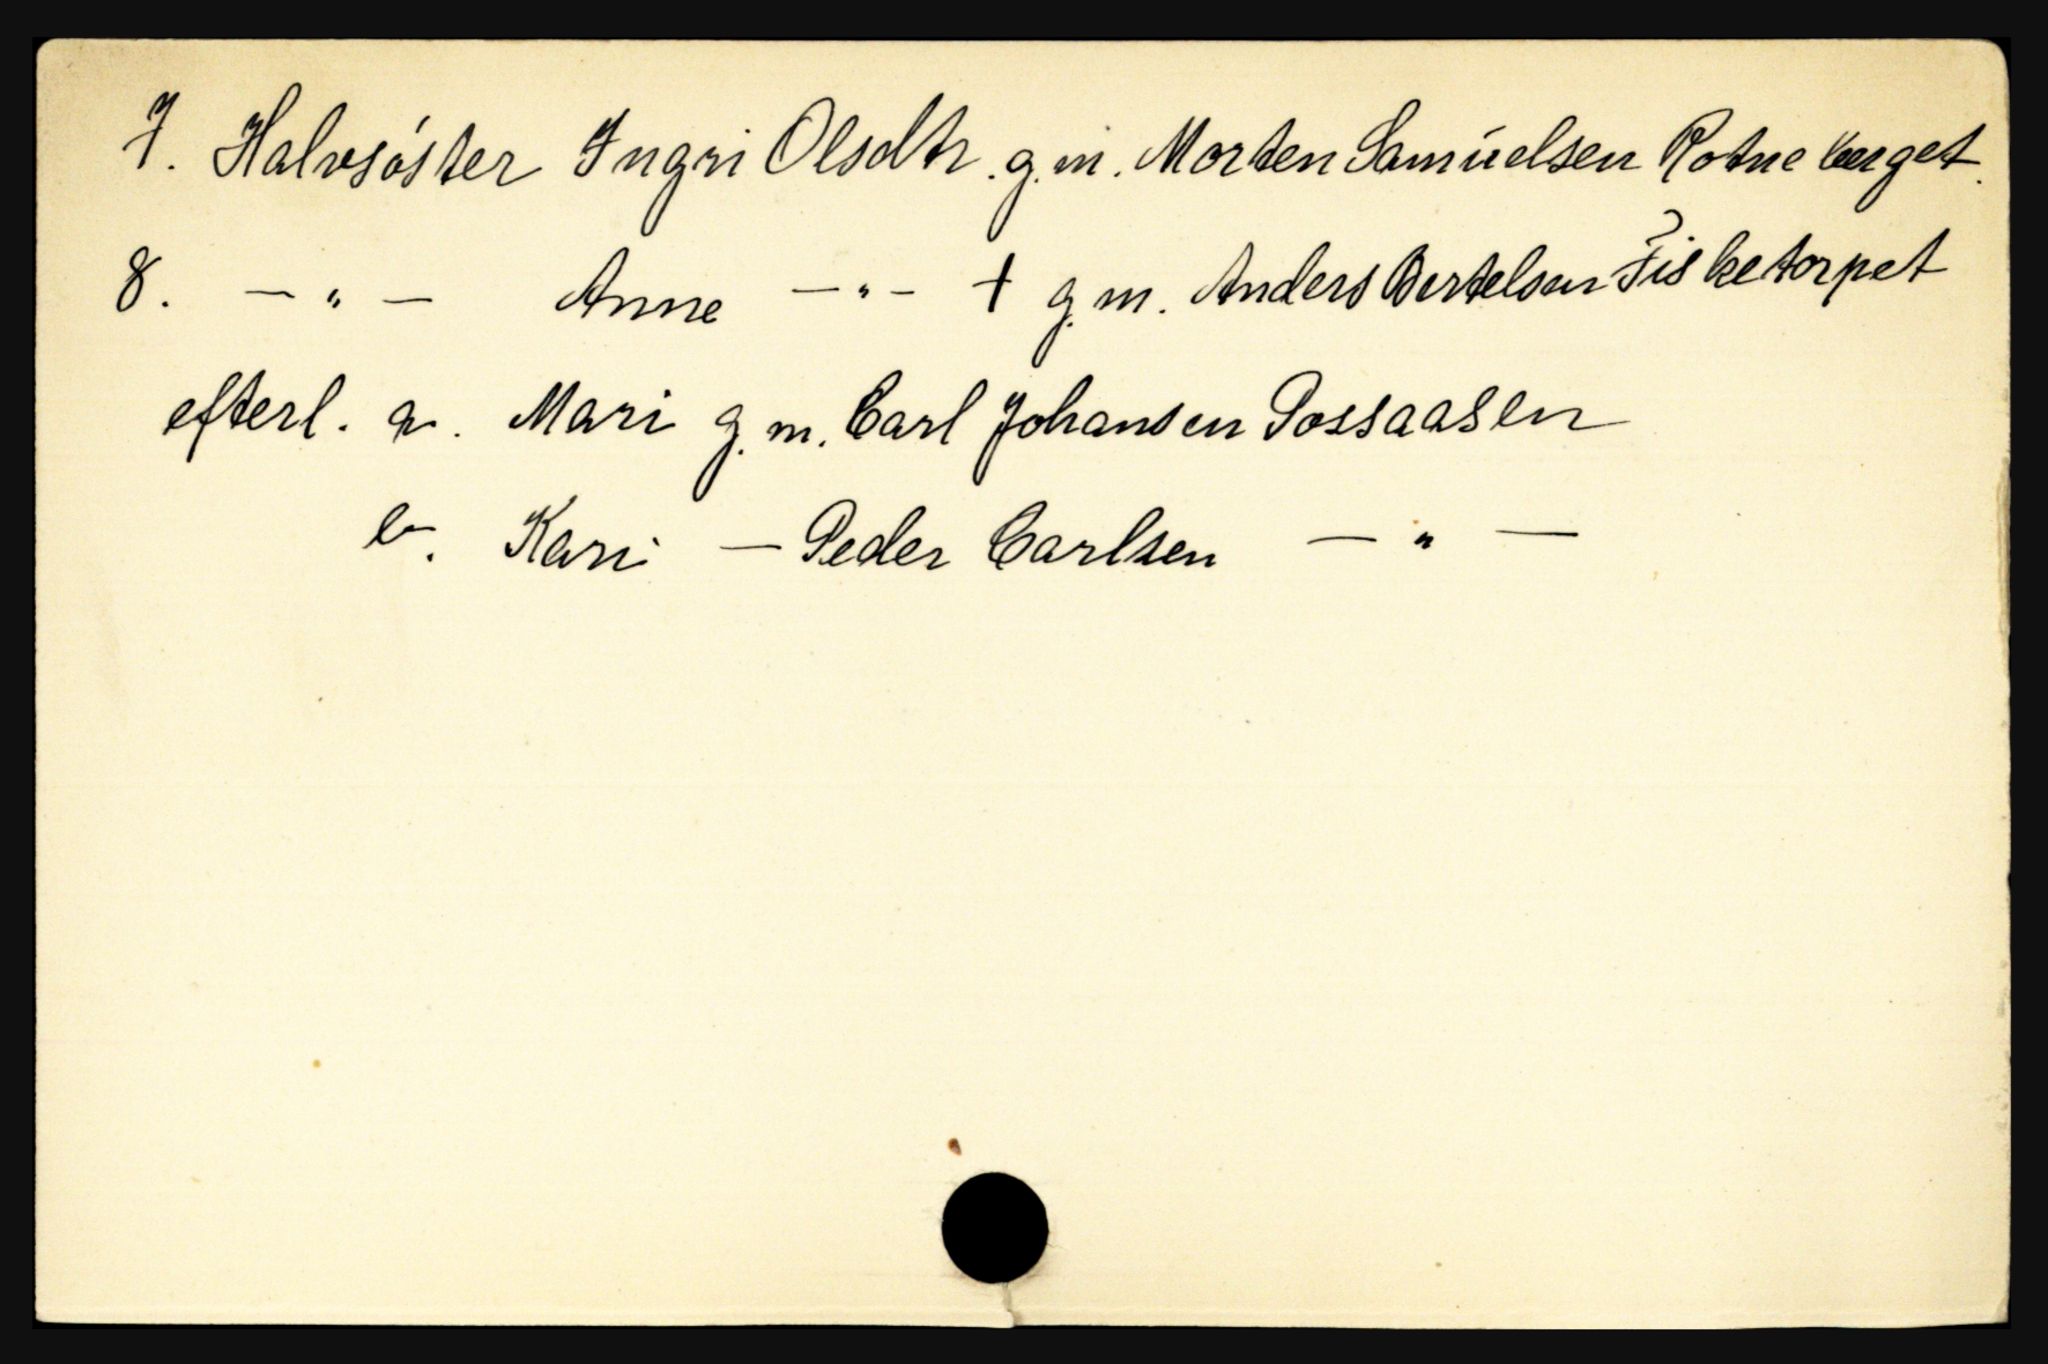 7. Halvsöster Ingri Olsdtr. g.m. Morten Samuelsen Rotneberget.
8. — " — Anne — " — + g.m. Anders Bertelsen Fisketorpet
efterl. a. Mari g.m. Carl Johansen Possaasen
b. Kari — Peder Carlsen — " —